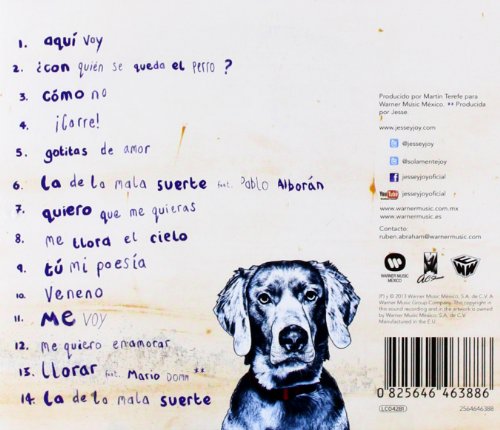 1. aquí voy
2. ¿con quién se queda el perro?
3. cómo no
4. ¡Corre!
5. gotitas de amor
6. la de la mala suerte feat. Pablo Alborán
7. quiero que me quieras
8. me llora el cielo
9. tú mi poesía
10. Veneno
11. Me voy
12. me quiero enamorar
13. llorar feat. Mario Domm **
14. la de la mala suerte
Producido por Martin Terefe para
Warner Music México. ** Producida
por Jesse.
www.jesseyjoy.com
@jesseyjoy
@solamentejoy
jesseyjoyoficial
YouTube jesseyjoyoficial
www.warnermusic.com.mx
www.warnermusic.es
Contacto:
ruben.abraham@warnermusic.com
WARNER MUSIC
MÉXICO
(P) y © 2013 Warner Music México, S.A. de C.V.
Warner Music Group Company. The copyright in
this sound recording and in the artwork is owned
by Warner Music México, S.A. de C.V.
Manufactured in the E.U.
0 825646 463886
LC04281
2564646388